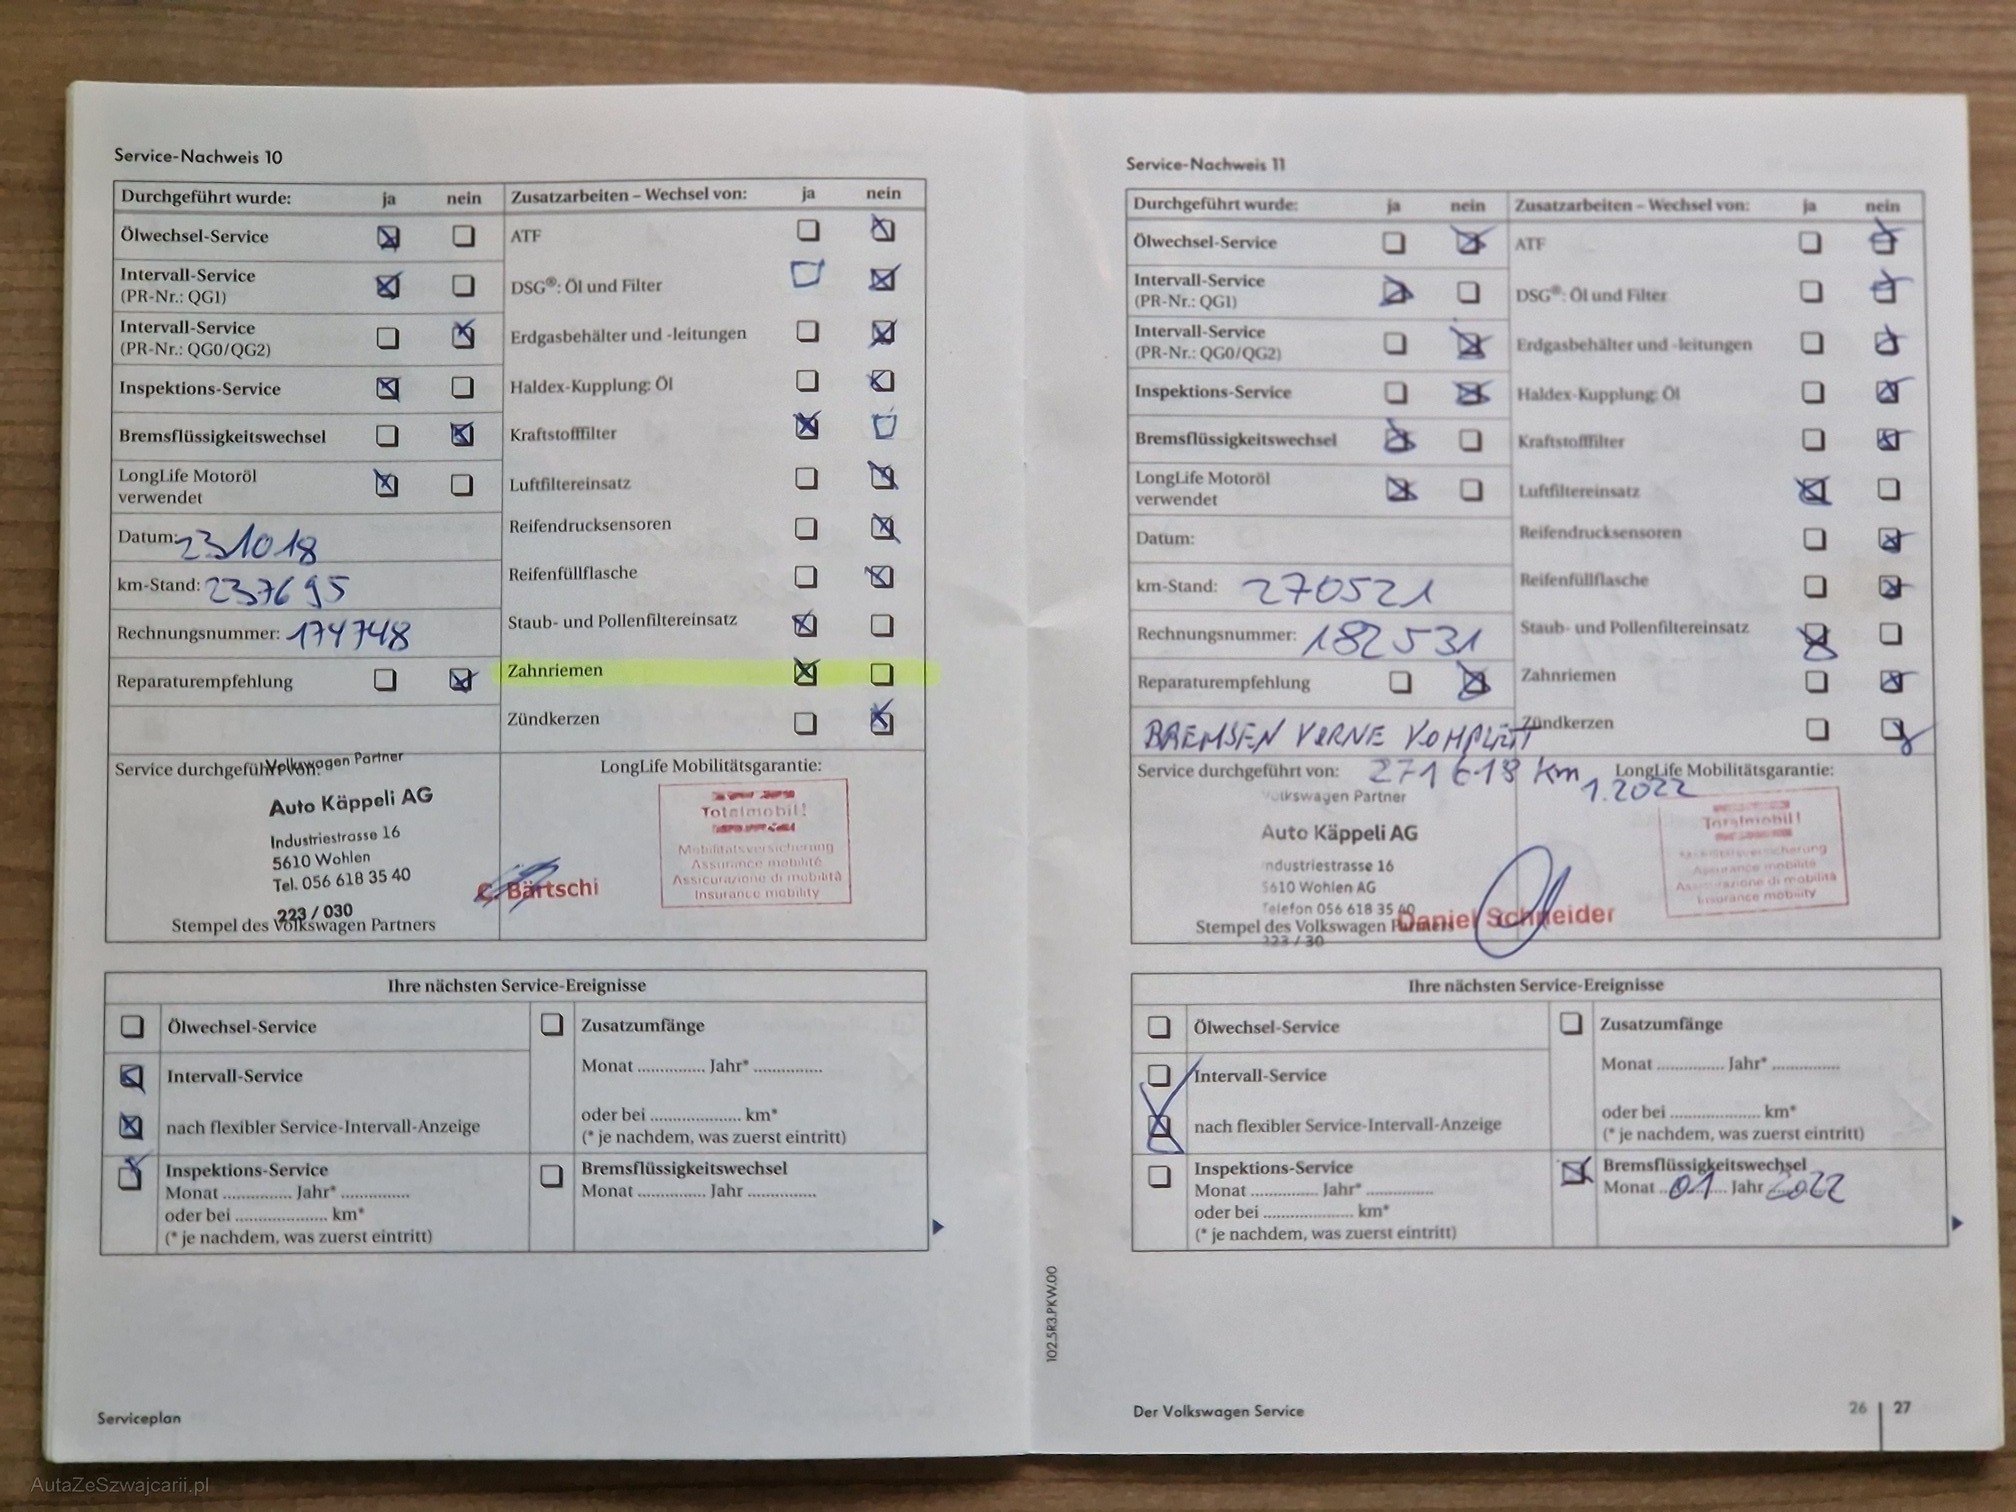 Service-Nachweis 10
Durchgeführt wurde: ja nein
Ölwechsel-Service
Intervall-Service
(PR-Nr.: QG1)
Intervall-Service
(PR-Nr.: QG0/QG2)
Inspektions-Service
Bremsflüssigkeitswechsel
LongLife Motoröl
verwendet
Datum: 231018
km-Stand: 237695
Rechnungsnummer: 174748
Reparaturempfehlung
Zusatzarbeiten – Wechsel von: ja nein
ATF
DSG®: Öl und Filter
Erdgasbehälter und -leitungen
Haldex-Kupplung: Öl
Kraftstofffilter
Luftfiltereinsatz
Reifendrucksensoren
Reifenfüllflasche
Staub- und Pollenfiltereinsatz
Zahnriemen
Zündkerzen
Service durchgeführt von:
Volkswagen Partner
Auto Käppeli AG
Industriestrasse 16
5610 Wohlen
Tel. 056 618 35 40
223 / 030
Stempel des Volkswagen Partners
C. Bärtschi
LongLife Mobilitätsgarantie:
Totalmobil!
Mobilitätsversicherung
Assurance mobilité
Assicurazione di mobilità
Insurance mobility
Ihre nächsten Service-Ereignisse
Ölwechsel-Service
Intervall-Service
nach flexibler Service-Intervall-Anzeige
Inspektions-Service
Monat .............. Jahr* ..............
oder bei ..................... km*
(* je nachdem, was zuerst eintritt)
Zusatzumfänge
Monat .............. Jahr* ..............
oder bei ..................... km*
(* je nachdem, was zuerst eintritt)
Bremsflüssigkeitswechsel
Monat .............. Jahr ..............
Serviceplan
Service-Nachweis 11
Durchgeführt wurde: ja nein
Ölwechsel-Service
Intervall-Service
(PR-Nr.: QG1)
Intervall-Service
(PR-Nr.: QG0/QG2)
Inspektions-Service
Bremsflüssigkeitswechsel
LongLife Motoröl
verwendet
Datum:
km-Stand: 270521
Rechnungsnummer: 182531
Reparaturempfehlung
BREMSEN VORNE KOMPLETT
Zusatzarbeiten – Wechsel von: ja nein
ATF
DSG®: Öl und Filter
Erdgasbehälter und -leitungen
Haldex-Kupplung: Öl
Kraftstofffilter
Luftfiltereinsatz
Reifendrucksensoren
Reifenfüllflasche
Staub- und Pollenfiltereinsatz
Zahnriemen
Zündkerzen
Service durchgeführt von: 271618 km
1.2022
Volkswagen Partner
Auto Käppeli AG
Industriestrasse 16
5610 Wohlen AG
Telefon 056 618 35 40
Stempel des Volkswagen Partners
223 / 30
Daniel Schneider
LongLife Mobilitätsgarantie:
Totalmobil!
Mobilitätsversicherung
Assurance mobilité
Assicurazione di mobilità
Insurance mobility
Ihre nächsten Service-Ereignisse
Ölwechsel-Service
Intervall-Service
nach flexibler Service-Intervall-Anzeige
Inspektions-Service
Monat .............. Jahr* ..............
oder bei ..................... km*
(* je nachdem, was zuerst eintritt)
Zusatzumfänge
Monat .............. Jahr* ..............
oder bei ..................... km*
(* je nachdem, was zuerst eintritt)
Bremsflüssigkeitswechsel
Monat 01 Jahr 2022
102.5R3.PKW.00
Der Volkswagen Service
26 | 27
AutaZeSzwajcarii.pl